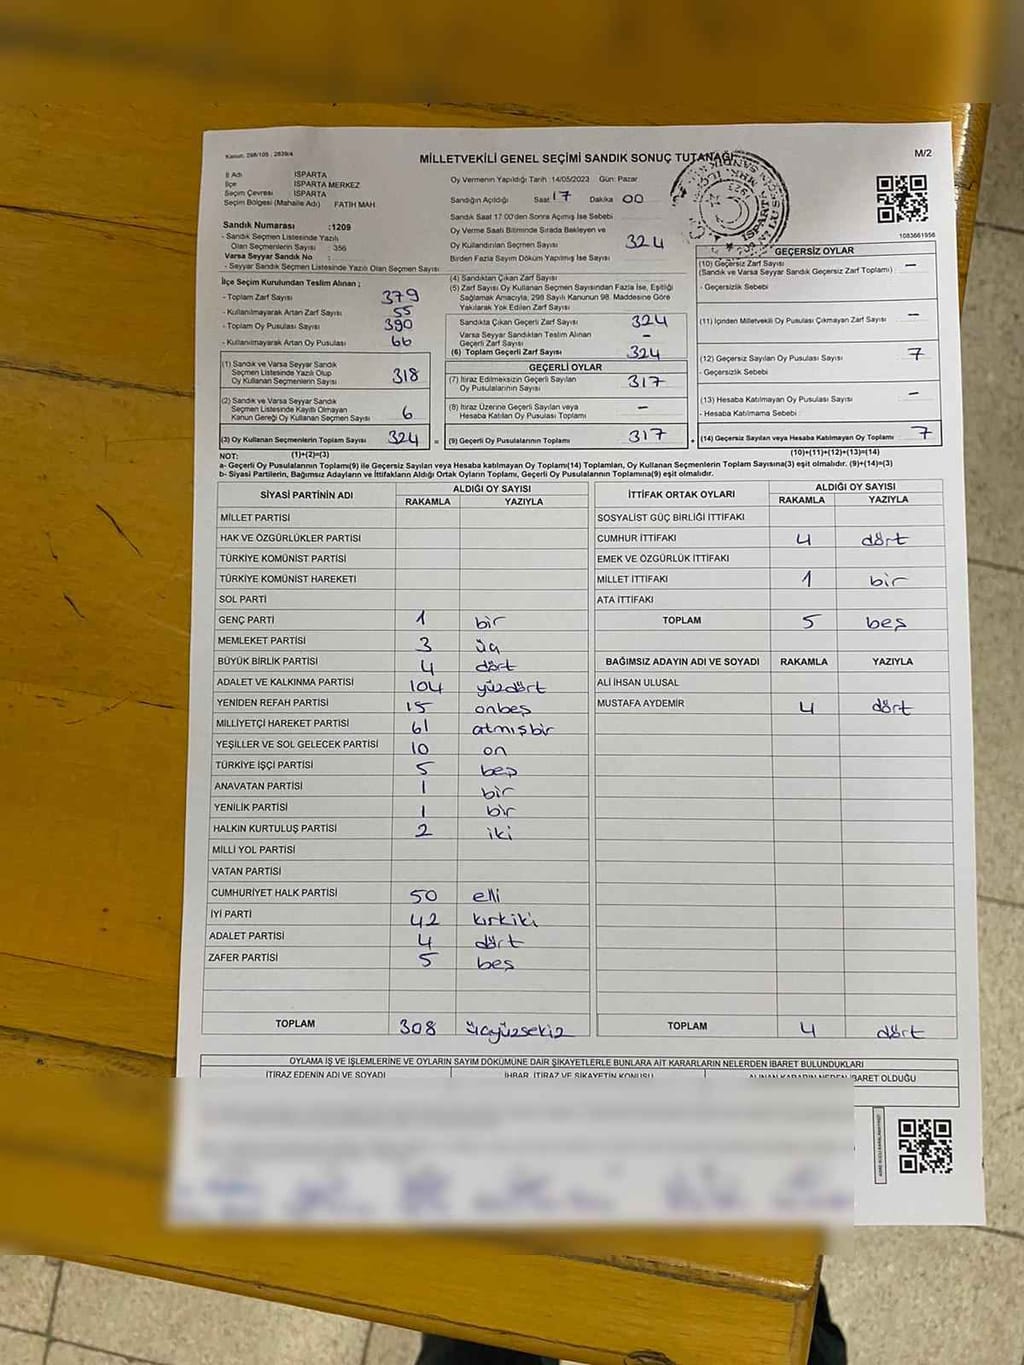 Kanun: 298/105 ; 2839/4
MİLLETVEKİLİ GENEL SEÇİMİ SANDIK SONUÇ TUTANAĞI
M/2
İl Adı ISPARTA
İlçe ISPARTA MERKEZ
Seçim Çevresi ISPARTA
Seçim Bölgesi (Mahalle Adı) FATİH MAH.
Sandık Numarası :1209
- Sandık Seçmen Listesinde Yazılı
Olan Seçmenlerin Sayısı : 356
Varsa Seyyar Sandık No :
- Seyyar Sandık Seçmen Listesinde Yazılı Olan Seçmen Sayısı
İlçe Seçim Kurulundan Teslim Alınan ;
- Toplam Zarf Sayısı 379
- Kullanılmayarak Artan Zarf Sayısı 55
- Toplam Oy Pusulası Sayısı 390
- Kullanılmayarak Artan Oy Pusulası 66
(1) Sandık ve Varsa Seyyar Sandık
Seçmen Listesinde Yazılı Olup
Oy Kullanan Seçmenlerin Sayısı 318
(2) Sandık ve Varsa Seyyar Sandık
Seçmen Listesinde Kayıtlı Olmayan
Kanun Gereği Oy Kullanan Seçmen Sayısı 6
(3) Oy Kullanan Seçmenlerin Toplam Sayısı 324 =
(1)+(2)=(3)
Oy Vermenin Yapıldığı Tarih :14/05/2023 Gün: Pazar
Sandığın Açıldığı Saat 17 Dakika 00
Sandık Saat 17:00'den Sonra Açımış İse Sebebi
Oy Verme Saati Bitiminde Sırada Bekleyen ve
Oy Kullandırılan Seçmen Sayısı 324
Birden Fazla Sayım Döküm Yapılmış İse Sayısı
(4) Sandıktan Çıkan Zarf Sayısı
(5) Zarf Sayısı Oy Kullanan Seçmen Sayısından Fazla İse, Eşitliği
Sağlamak Amacıyla, 298 Sayılı Kanunun 98. Maddesine Göre
Yakılarak Yok Edilen Zarf Sayısı
Sandıkta Çıkan Geçerli Zarf Sayısı 324
Varsa Seyyar Sandıktan Teslim Alınan
Geçerli Zarf Sayısı -
(6) Toplam Geçerli Zarf Sayısı 324
GEÇERLİ OYLAR
(7) İtiraz Edilmeksizin Geçerli Sayılan
Oy Pusulalarının Sayısı 317
(8) İtiraz Üzerine Geçerli Sayılan veya
Hesaba Katılan Oy Pusulası Toplamı -
(9) Geçerli Oy Pusulalarının Toplamı 317 +
1083661956
GEÇERSİZ OYLAR
(10) Geçersiz Zarf Sayısı -
(Sandık ve Varsa Seyyar Sandık Geçersiz Zarf Toplamı)
- Geçersizlik Sebebi
(11) İçinden Milletvekili Oy Pusulası Çıkmayan Zarf Sayısı -
(12) Geçersiz Sayılan Oy Pusulası Sayısı 7
- Geçersizlik Sebebi
(13) Hesaba Katılmayan Oy Pusulası Sayısı -
- Hesaba Katılmama Sebebi
(14) Geçersiz Sayılan veya Hesaba Katılmayan Oy Toplamı 7
(10)+(11)+(12)+(13)=(14)
NOT:
a- Geçerli Oy Pusulalarının Toplamı(9) ile Geçersiz Sayılan veya Hesaba katılmayan Oy Toplamı(14) Toplamları, Oy Kullanan Seçmenlerin Toplam Sayısına(3) eşit olmalıdır. (9)+(14)=(3)
b- Siyasi Partilerin, Bağımsız Adayların ve İttifakların Aldığı Ortak Oyların Toplamı, Geçerli Oy Pusulalarının Toplamına(9) eşit olmalıdır.
SİYASİ PARTİNİN ADI ALDIĞI OY SAYISI
RAKAMLA YAZIYLA
MİLLET PARTİSİ
HAK VE ÖZGÜRLÜKLER PARTİSİ
TÜRKİYE KOMÜNİST PARTİSİ
TÜRKİYE KOMÜNİST HAREKETİ
SOL PARTİ
GENÇ PARTİ 1 bir
MEMLEKET PARTİSİ 3 üç
BÜYÜK BİRLİK PARTİSİ 4 dört
ADALET VE KALKINMA PARTİSİ 104 yüzdört
YENİDEN REFAH PARTİSİ 15 onbeş
MİLLİYETÇİ HAREKET PARTİSİ 61 atmışbir
YEŞİLLER VE SOL GELECEK PARTİSİ 10 on
TÜRKİYE İŞÇİ PARTİSİ 5 beş
ANAVATAN PARTİSİ 1 bir
YENİLİK PARTİSİ 1 bir
HALKIN KURTULUŞ PARTİSİ 2 iki
MİLLİ YOL PARTİSİ
VATAN PARTİSİ
CUMHURİYET HALK PARTİSİ 50 elli
İYİ PARTİ 42 kırkiki
ADALET PARTİSİ 4 dört
ZAFER PARTİSİ 5 beş
TOPLAM 308 üçyüzsekiz
İTTİFAK ORTAK OYLARI ALDIĞI OY SAYISI
RAKAMLA YAZIYLA
SOSYALİST GÜÇ BİRLİĞİ İTTİFAKI
CUMHUR İTTİFAKI 4 dört
EMEK VE ÖZGÜRLÜK İTTİFAKI
MİLLET İTTİFAKI 1 bir
ATA İTTİFAKI
TOPLAM 5 beş
BAĞIMSIZ ADAYIN ADI VE SOYADI RAKAMLA YAZIYLA
ALİ İHSAN ULUSAL
MUSTAFA AYDEMİR 4 dört
TOPLAM 4 dört
OYLAMA İŞ VE İŞLEMLERİNE VE OYLARIN SAYIM DÖKÜMÜNE DAİR ŞİKAYETLERLE BUNLARA AİT KARARLARIN NELERDEN İBARET BULUNDUKLARI
İTİRAZ EDENİN ADI VE SOYADI İHBAR, İTİRAZ VE ŞİKAYETİN KONUSU ALINAN KARARIN NEDEN İBARET OLDUĞU